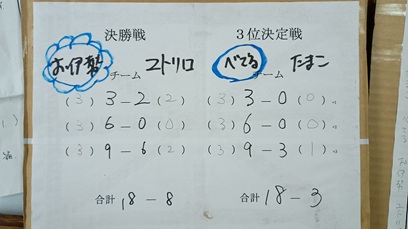 決勝戦
お伊勢 チーム ユトリロ
(3) 3 - 2 (2)
(3) 6 - 0 (0)
(3) 9 - 6 (2)
合計 18 - 8
3位決定戦
べてる チーム たまこ
(3) 3 - 0 (0)
(3) 6 - 0 (0)
(3) 9 - 3 (1)
合計 18 - 3